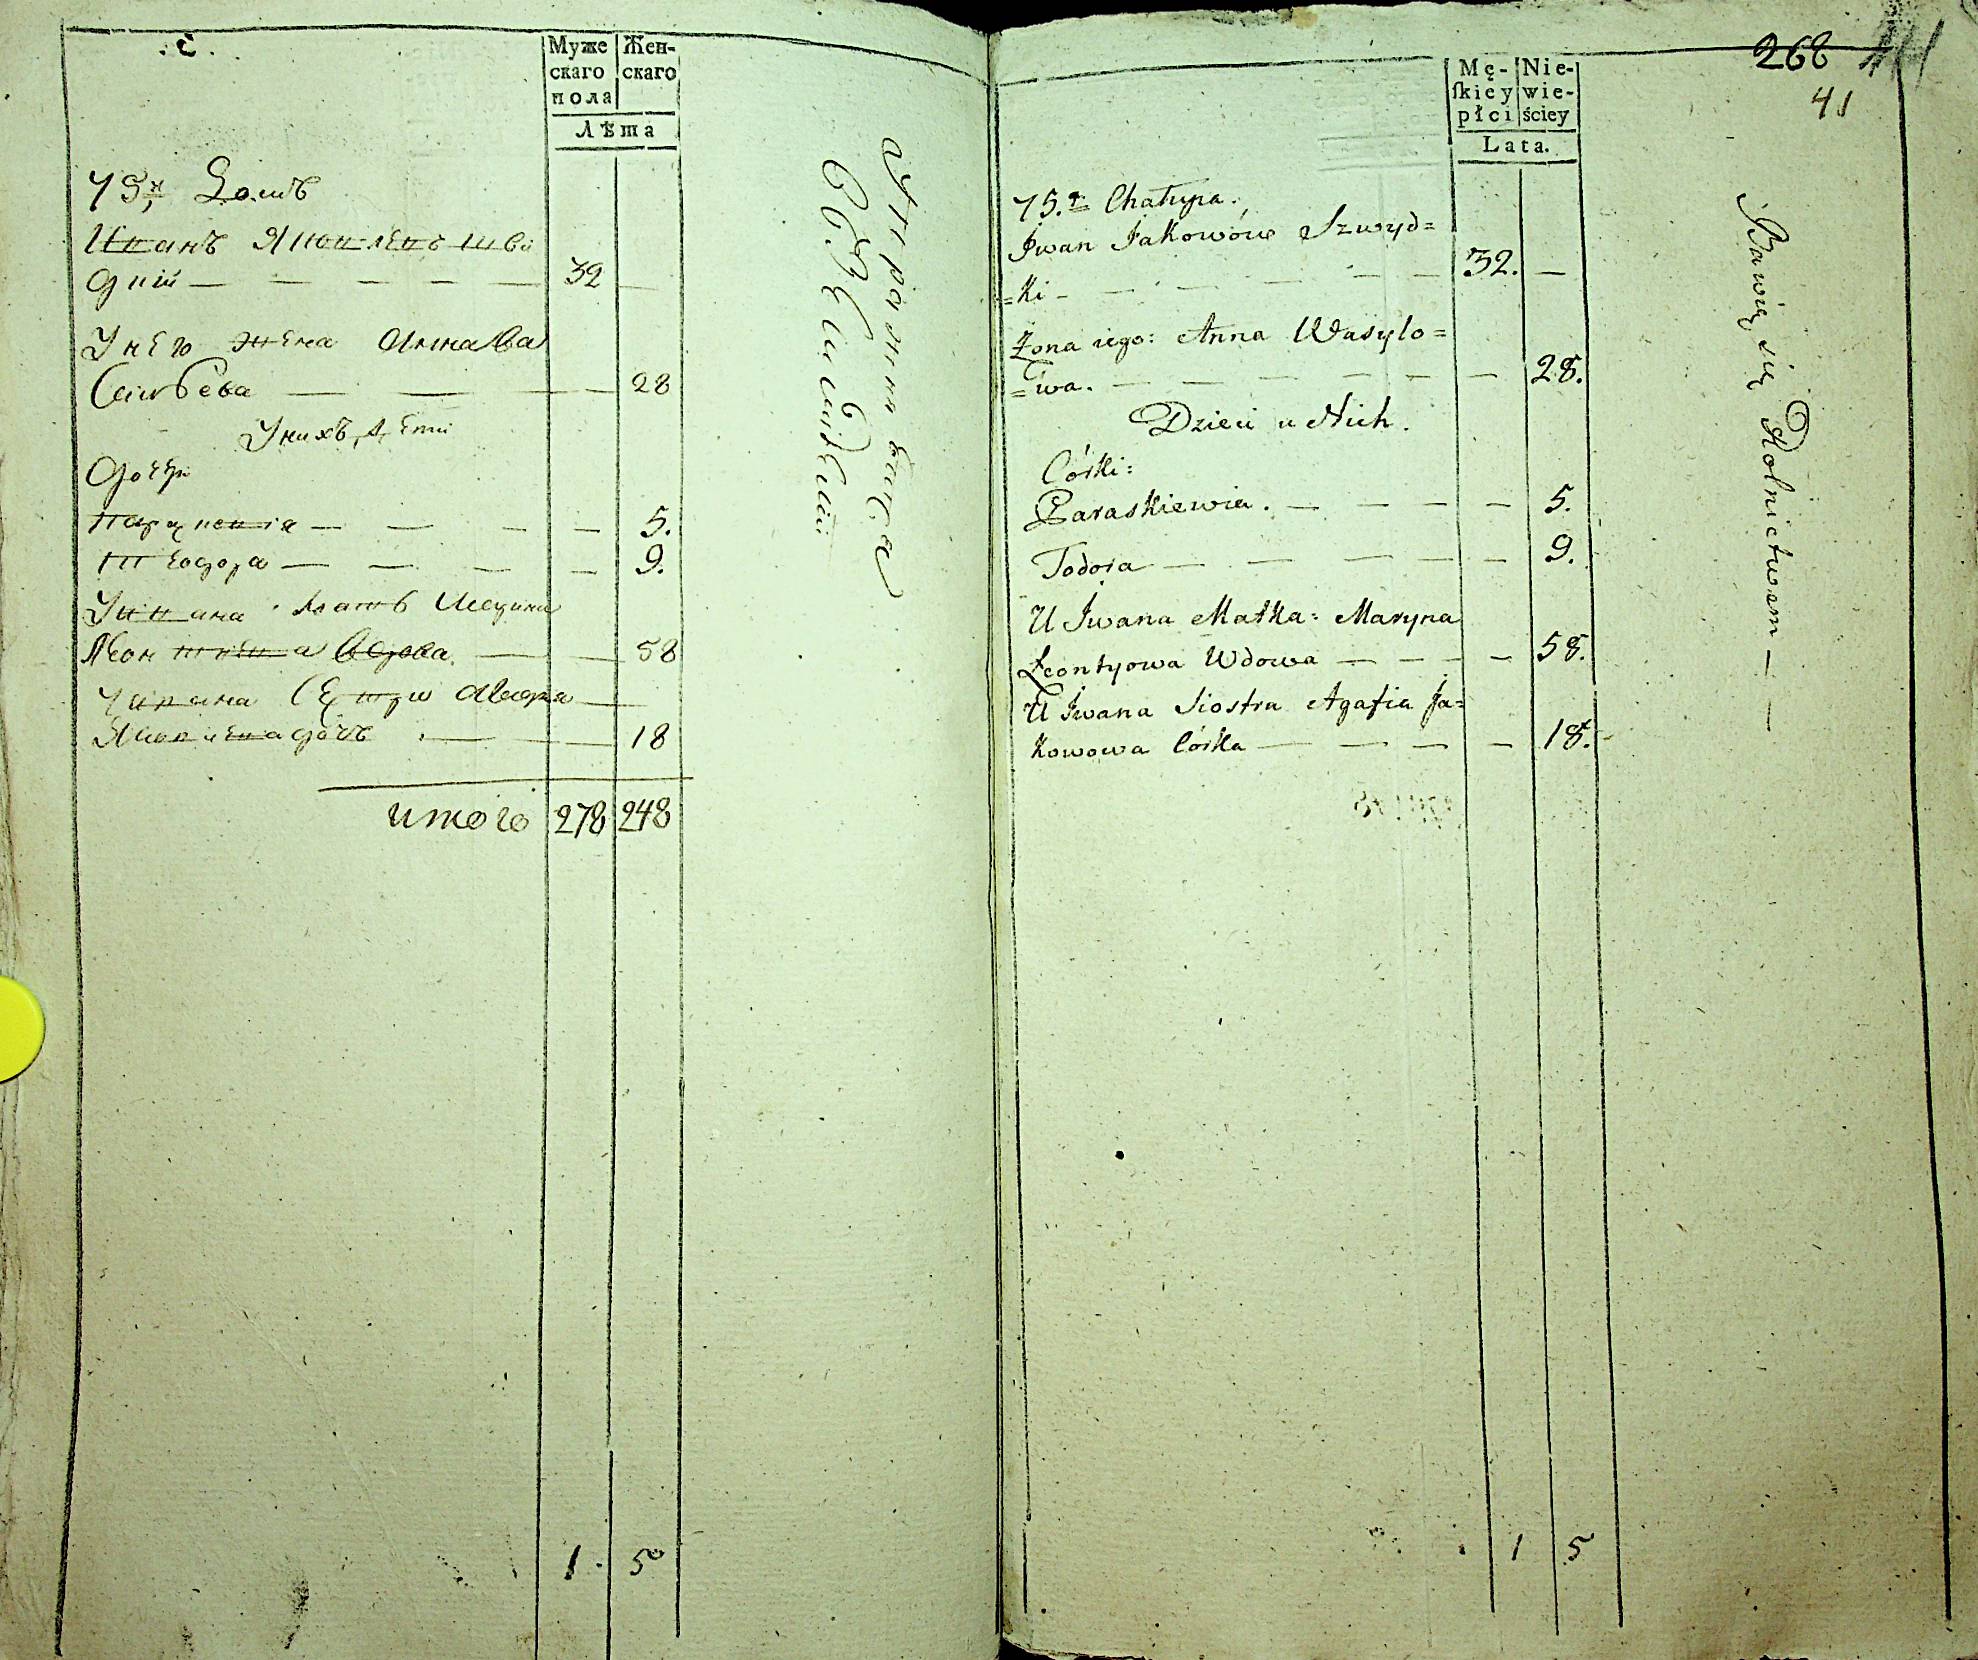 Муже Жен-
скаго скаго
пола
Лѣта
75й Домъ
Иванъ Яковлевъ Шви
дкій — — — — — 32 —
У него жена Анна Ва
сильева — — — 28
У нихъ дети
Дочери
Параскевия — — — — 5.
Теодора — — — — 9.
У Ивана мать Марина
Леонтиева вдова — — 58
У Ивана сестра Агафия —
Яковлева дочъ — — 18
итого 278 248
1. 5
упражняются
268
41
Mę- Nie-
ſkiey wie-
płci ściey
Lata.
75.ta Chałupa.
Jwan Jakowów Szwyd=
=ki — — — — — 32. —
Żona iego: Anna Wasylo=
=wa. — — — — — — 28.
Dzieci u Nich.
Córki:
Paraskiewia. — — — — 5.
Todora — — — — — 9.
U Jwana Matka: Maryna
Leontyowa Wdowa — — — — 58.
U Jwana Siostra Agafia Ja=
kowowa Córka — — — — 18.
1 5
Bawią się Rolnictwem — — —